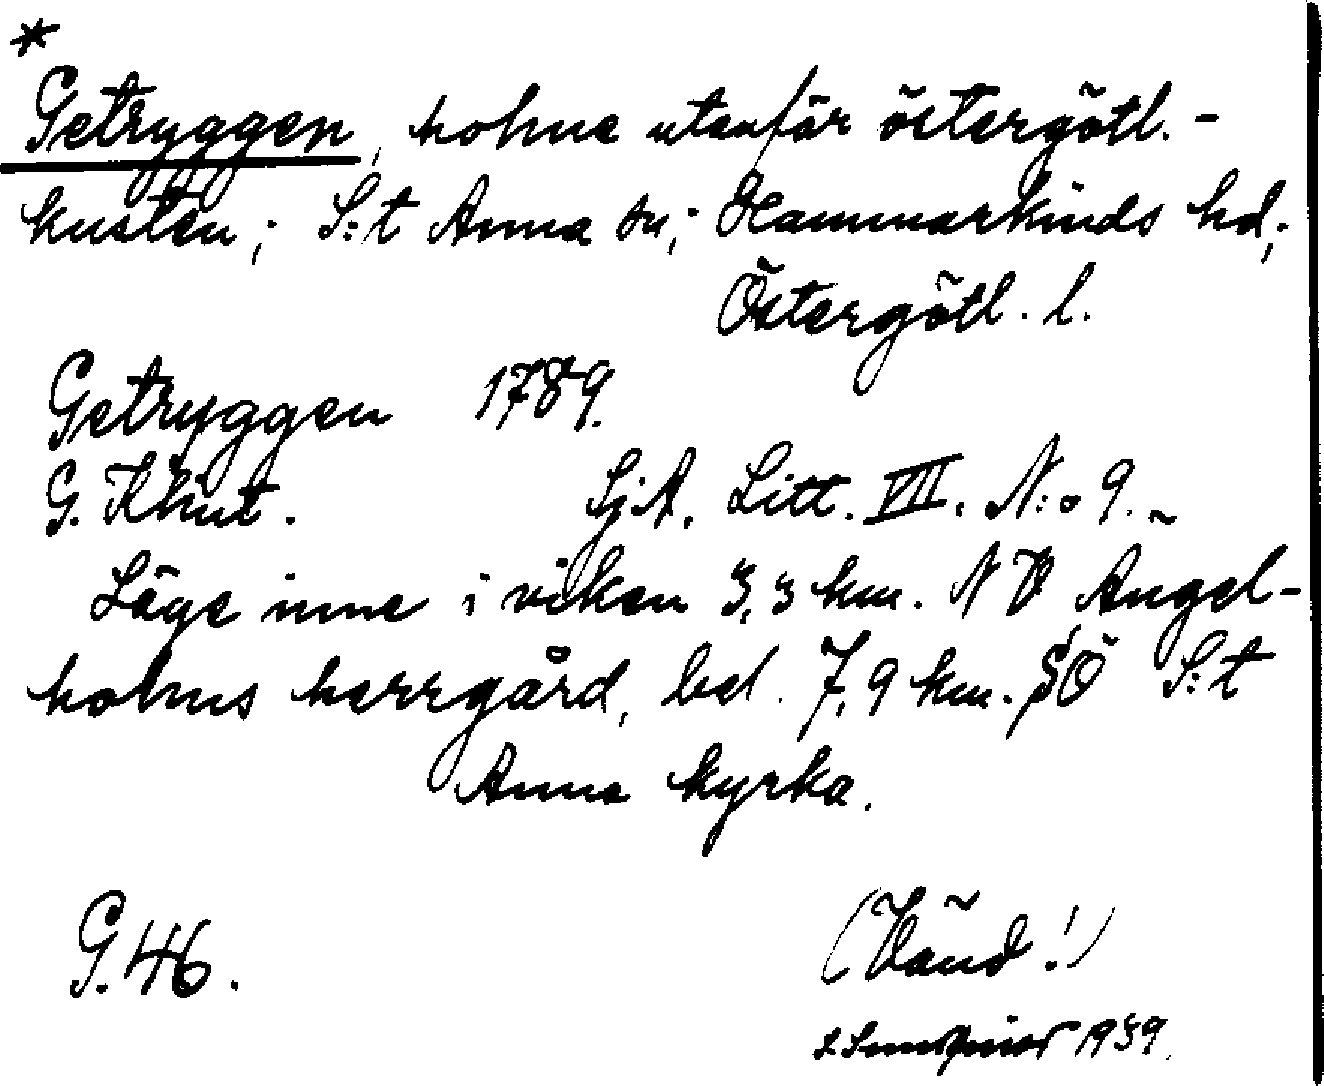 *
Getryggen, holme utanför östergötl.-
kusten; S:t Anna sn; Hammarkinds hd;
Östergötl. l.
Getryggen 1789.
G. Klint. SjA. Litt. VII. N:o 9.
Läge inne i viken 3,3 km. NV Ängel-
holms herrgård, bel. 7,9 km. SÖ S:t
Anna kyrka.
G.46.
(Vänd!)
1939.